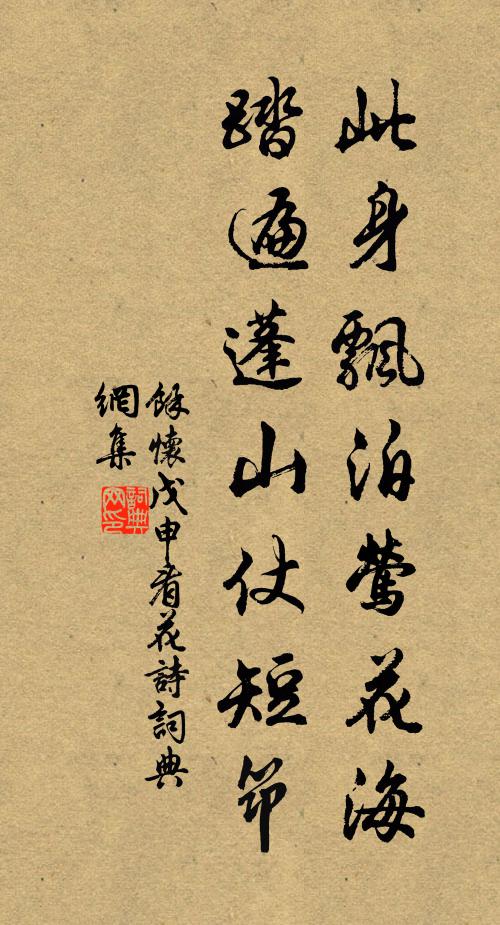 此身飄泊鶯花海
踏遍蓬山仗短筇
餘懷戊申看花詩詞典
網集
詞典
网印